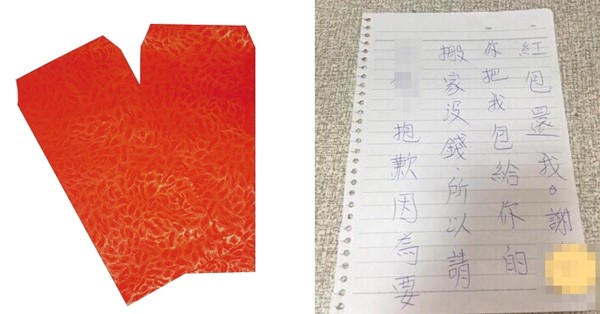 抱歉因為要
搬家沒錢.所以請
你把我包給你的
紅包還我。謝